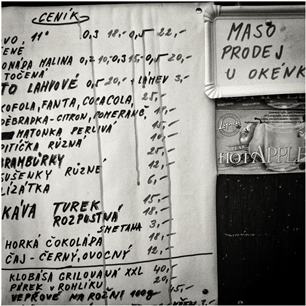 CENÍK
VO, 11° 0,3 18,- 0,5 22,-
ENÉ
ONÁDA MALINA 0,2 10,- 0,3 15,- 0,5 20,-
TOČENÁ
TO LAHVOVÉ 0,5 20,- + LAHEV 3,-
KOFOLA, FANTA, COCACOLA, 25,-
DĚBRADKA-CITRON, POMERANČ,
MATONKA PERLIVÁ 15,-
PITÍČKA RŮZNÁ
BRAMBŮRKY
SUŠENKY RŮZNÉ 12,-
LÍZÁTKA 6,-
KÁVA TUREK 15,-
ROZPUSTNÁ 18,-
SMETANA 3,-
HORKÁ ČOKOLÁDA 18,-
ČAJ - ČERNÝ, OVOCNÝ 12,-
KLOBÁSA GRILOVANÁ XXL 40,-
PÁREK V ROHLÍKU 20,-
VEPŘOVÉ NA ROŽNI 100g
MASO
PRODEJ
U OKÉNK
HOT APPLE